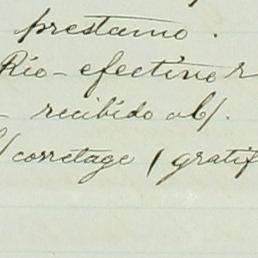 prestamo.
Rio - efectivo
- recibido ob/.
/corretage / gratif